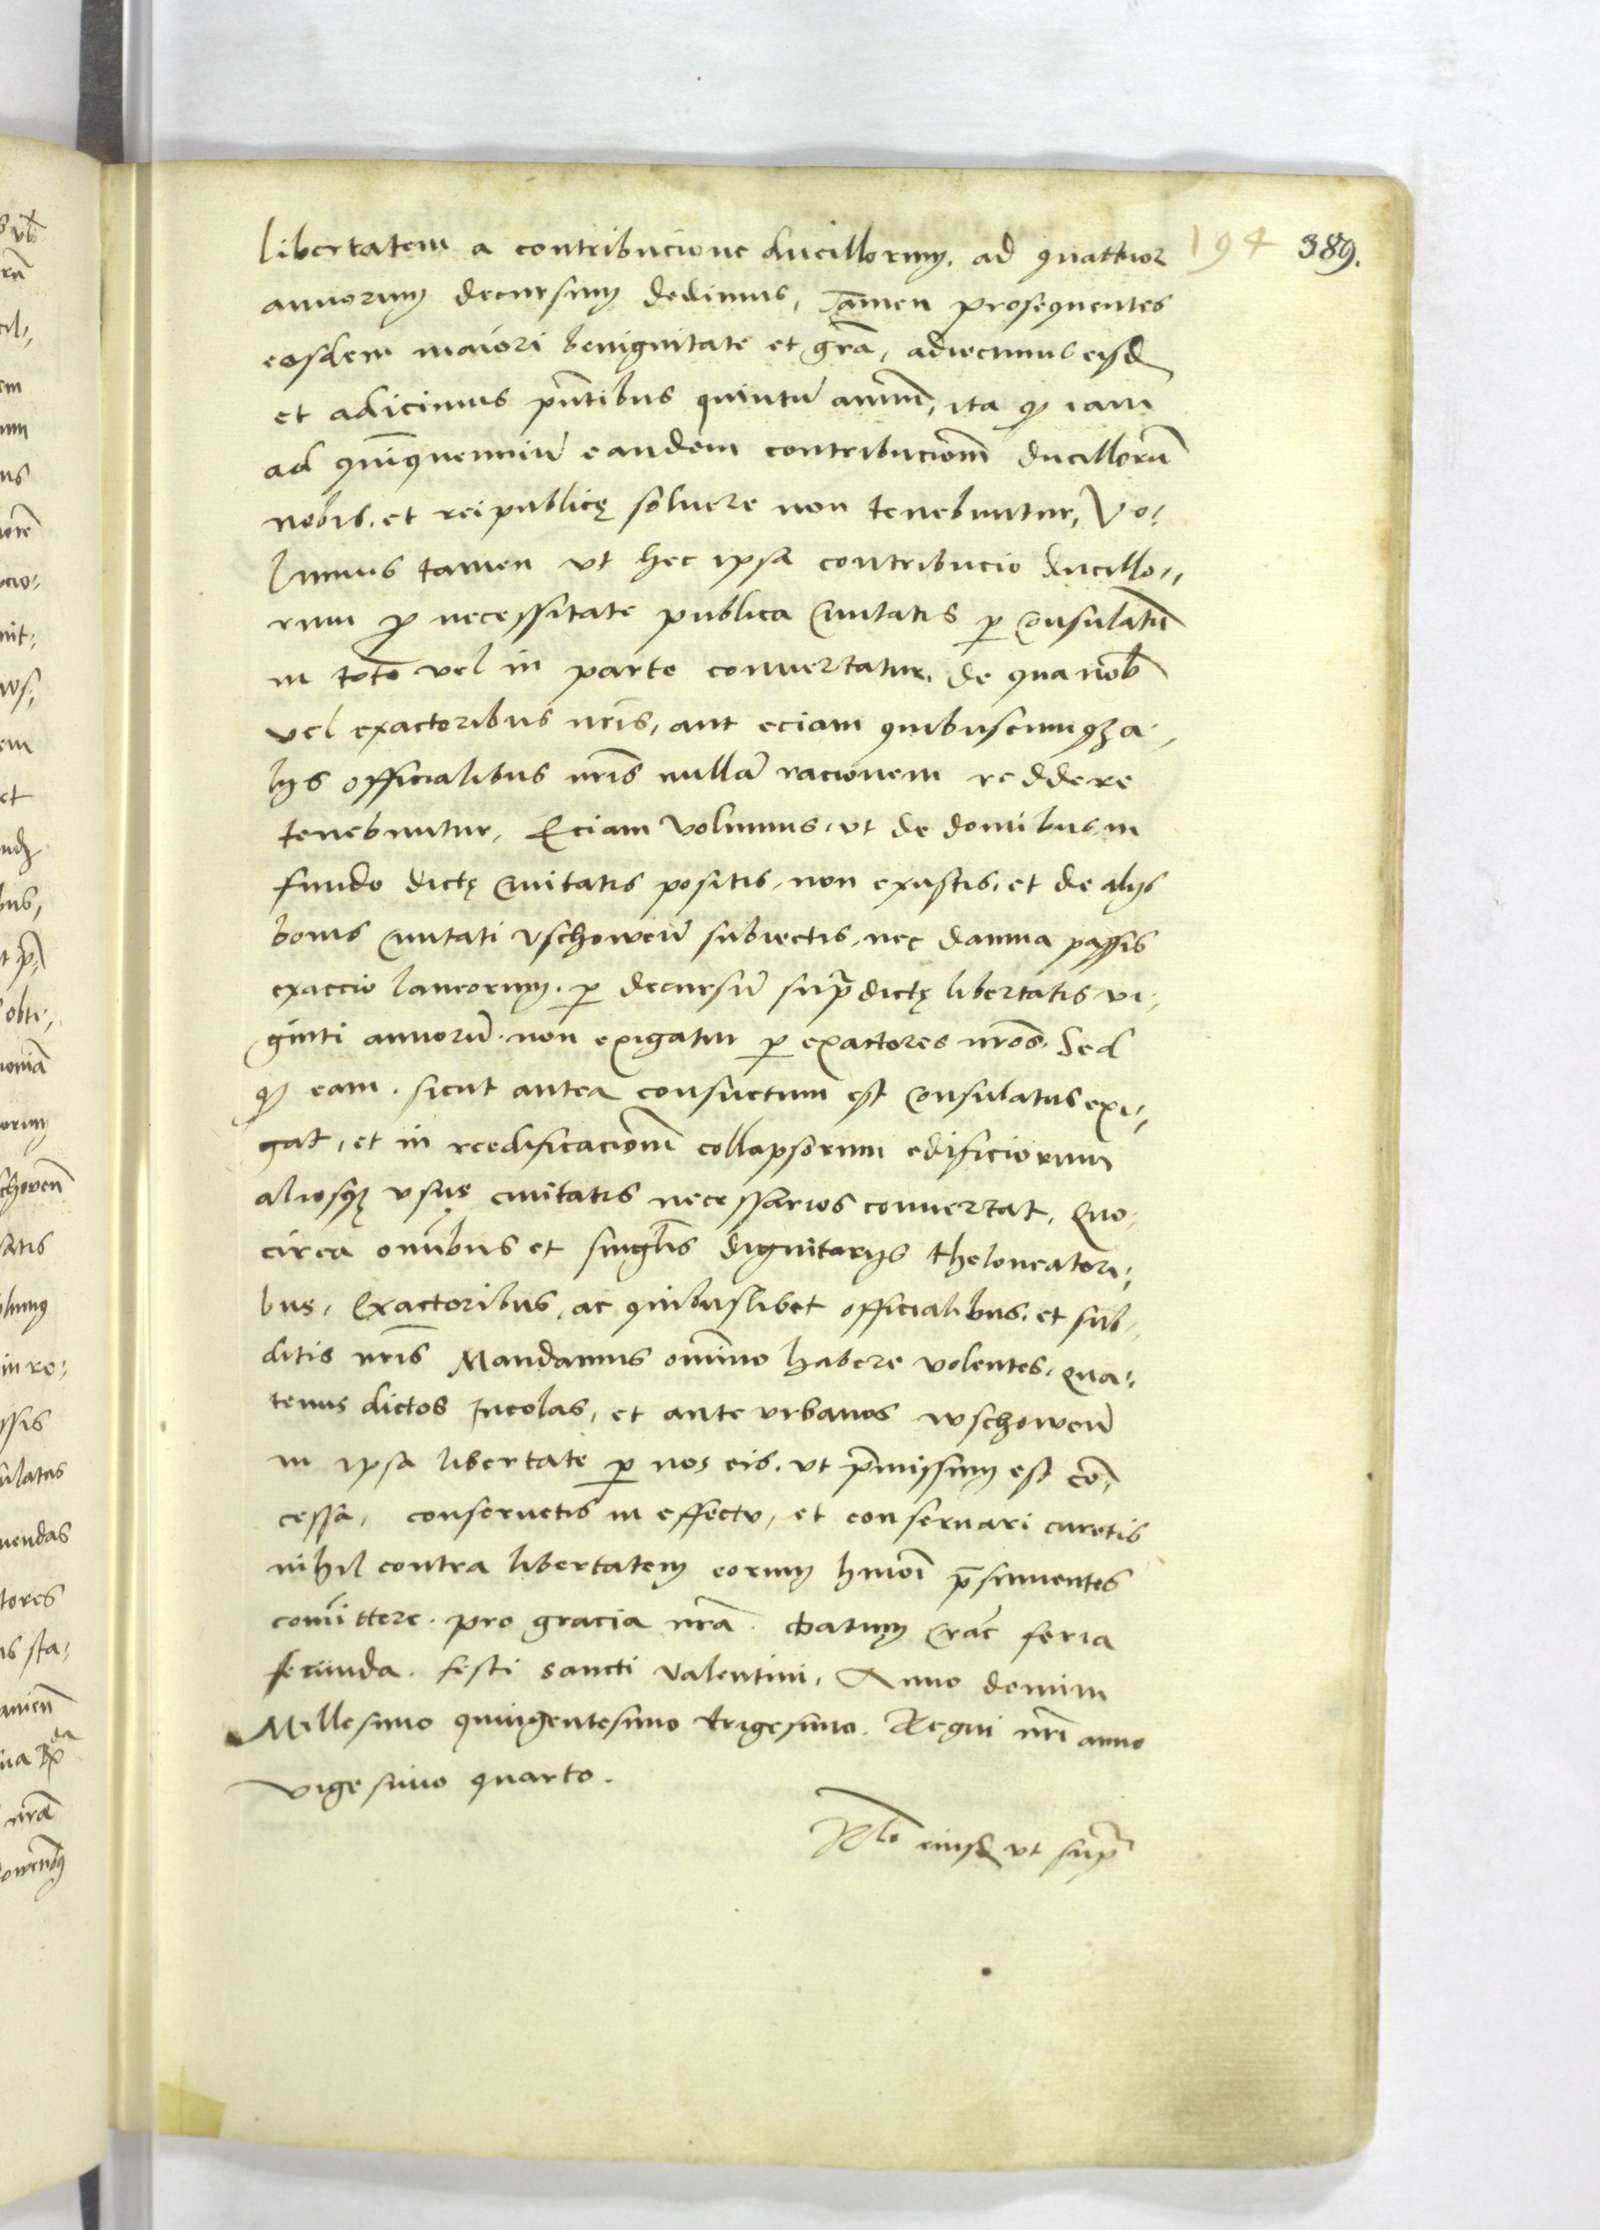 libertatem a contribucione ducillorum, ad quattuor 194 389.
annorum decursum dedimus, Tamen prosequentes
eosdem maiori benignitate et grā, adiecimus eisd
et adicimus pn̄tibus quintū annū, ita q̊ iam
ad quīquenniū eandem contribucionē ducillorū
nobis, et reipublicę soluere non tenebuntur, Vo-
lumus tamen vt hec ipsa contribucio ducillo-
rum p necessitate publica Ciuitatis p Consulatū
in toto vel in parte conuertatur, de qua nob̄
vel exactoribus nr̄is, aut eciam quibuscunqꝫ a-
lijs officialibus nr̄is nullā racionem reddere
tenebuntur, Eciam volumus, vt de domibus in
fundo dictę Ciuitatis positis, non exustis, et de alijs
bonis Ciuitati Vschowen̄ subiectis, nec damna passis
exaccio laneorum, p decursū sup̄dictę libertatis vi-
ginti annorū, non exigatur p exactores nr̄os, Sed
q̊ eam, sicut antea consuetum est Consulatus exi-
gat, et in reedificacionē collapsorum edificiorum
aliosqꝫ vsus ciuitatis necessarios conuertat, Quo-
circa omībus et singlīs dignitarijs theloneatori-
bus, Exactoribus, ac quibuslibet officialibus, et sub-
ditis nr̄is Mandamus omīno habere volentes, qua-
tenus dictos Incolas, et ante vrbanos wschowen̄
in ipsa libertate p nos eis, vt p̄missum est cō-
cessa, conseruetis in effectu, et conseruari curetis
nihil contra libertatem eorum hmōi p̄sumentes
comīttere, pro gracia nrā. Datum Crac̄ feria
secunda, festi sancti Valentini, Anno domini
Millesimo quingentesimo trigesimo. Regni nr̄i anno
vigesimo quarto.
Rlo eiusd vt sup̄